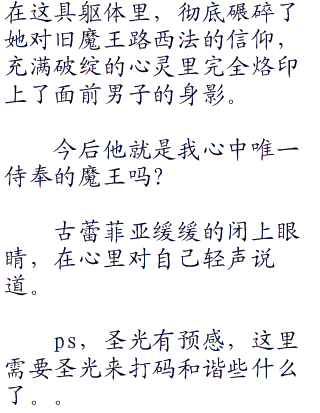 在这具躯体里，彻底碾碎了
她对旧魔王路西法的信仰，
充满破绽的心灵里完全烙印
上了面前男子的身影。
今后他就是我心中唯一
侍奉的魔王吗？
古蕾菲亚缓缓的闭上眼
睛，在心里对自己轻声说
道。
ps，圣光有预感，这里
需要圣光来打码和谐些什么
了。。